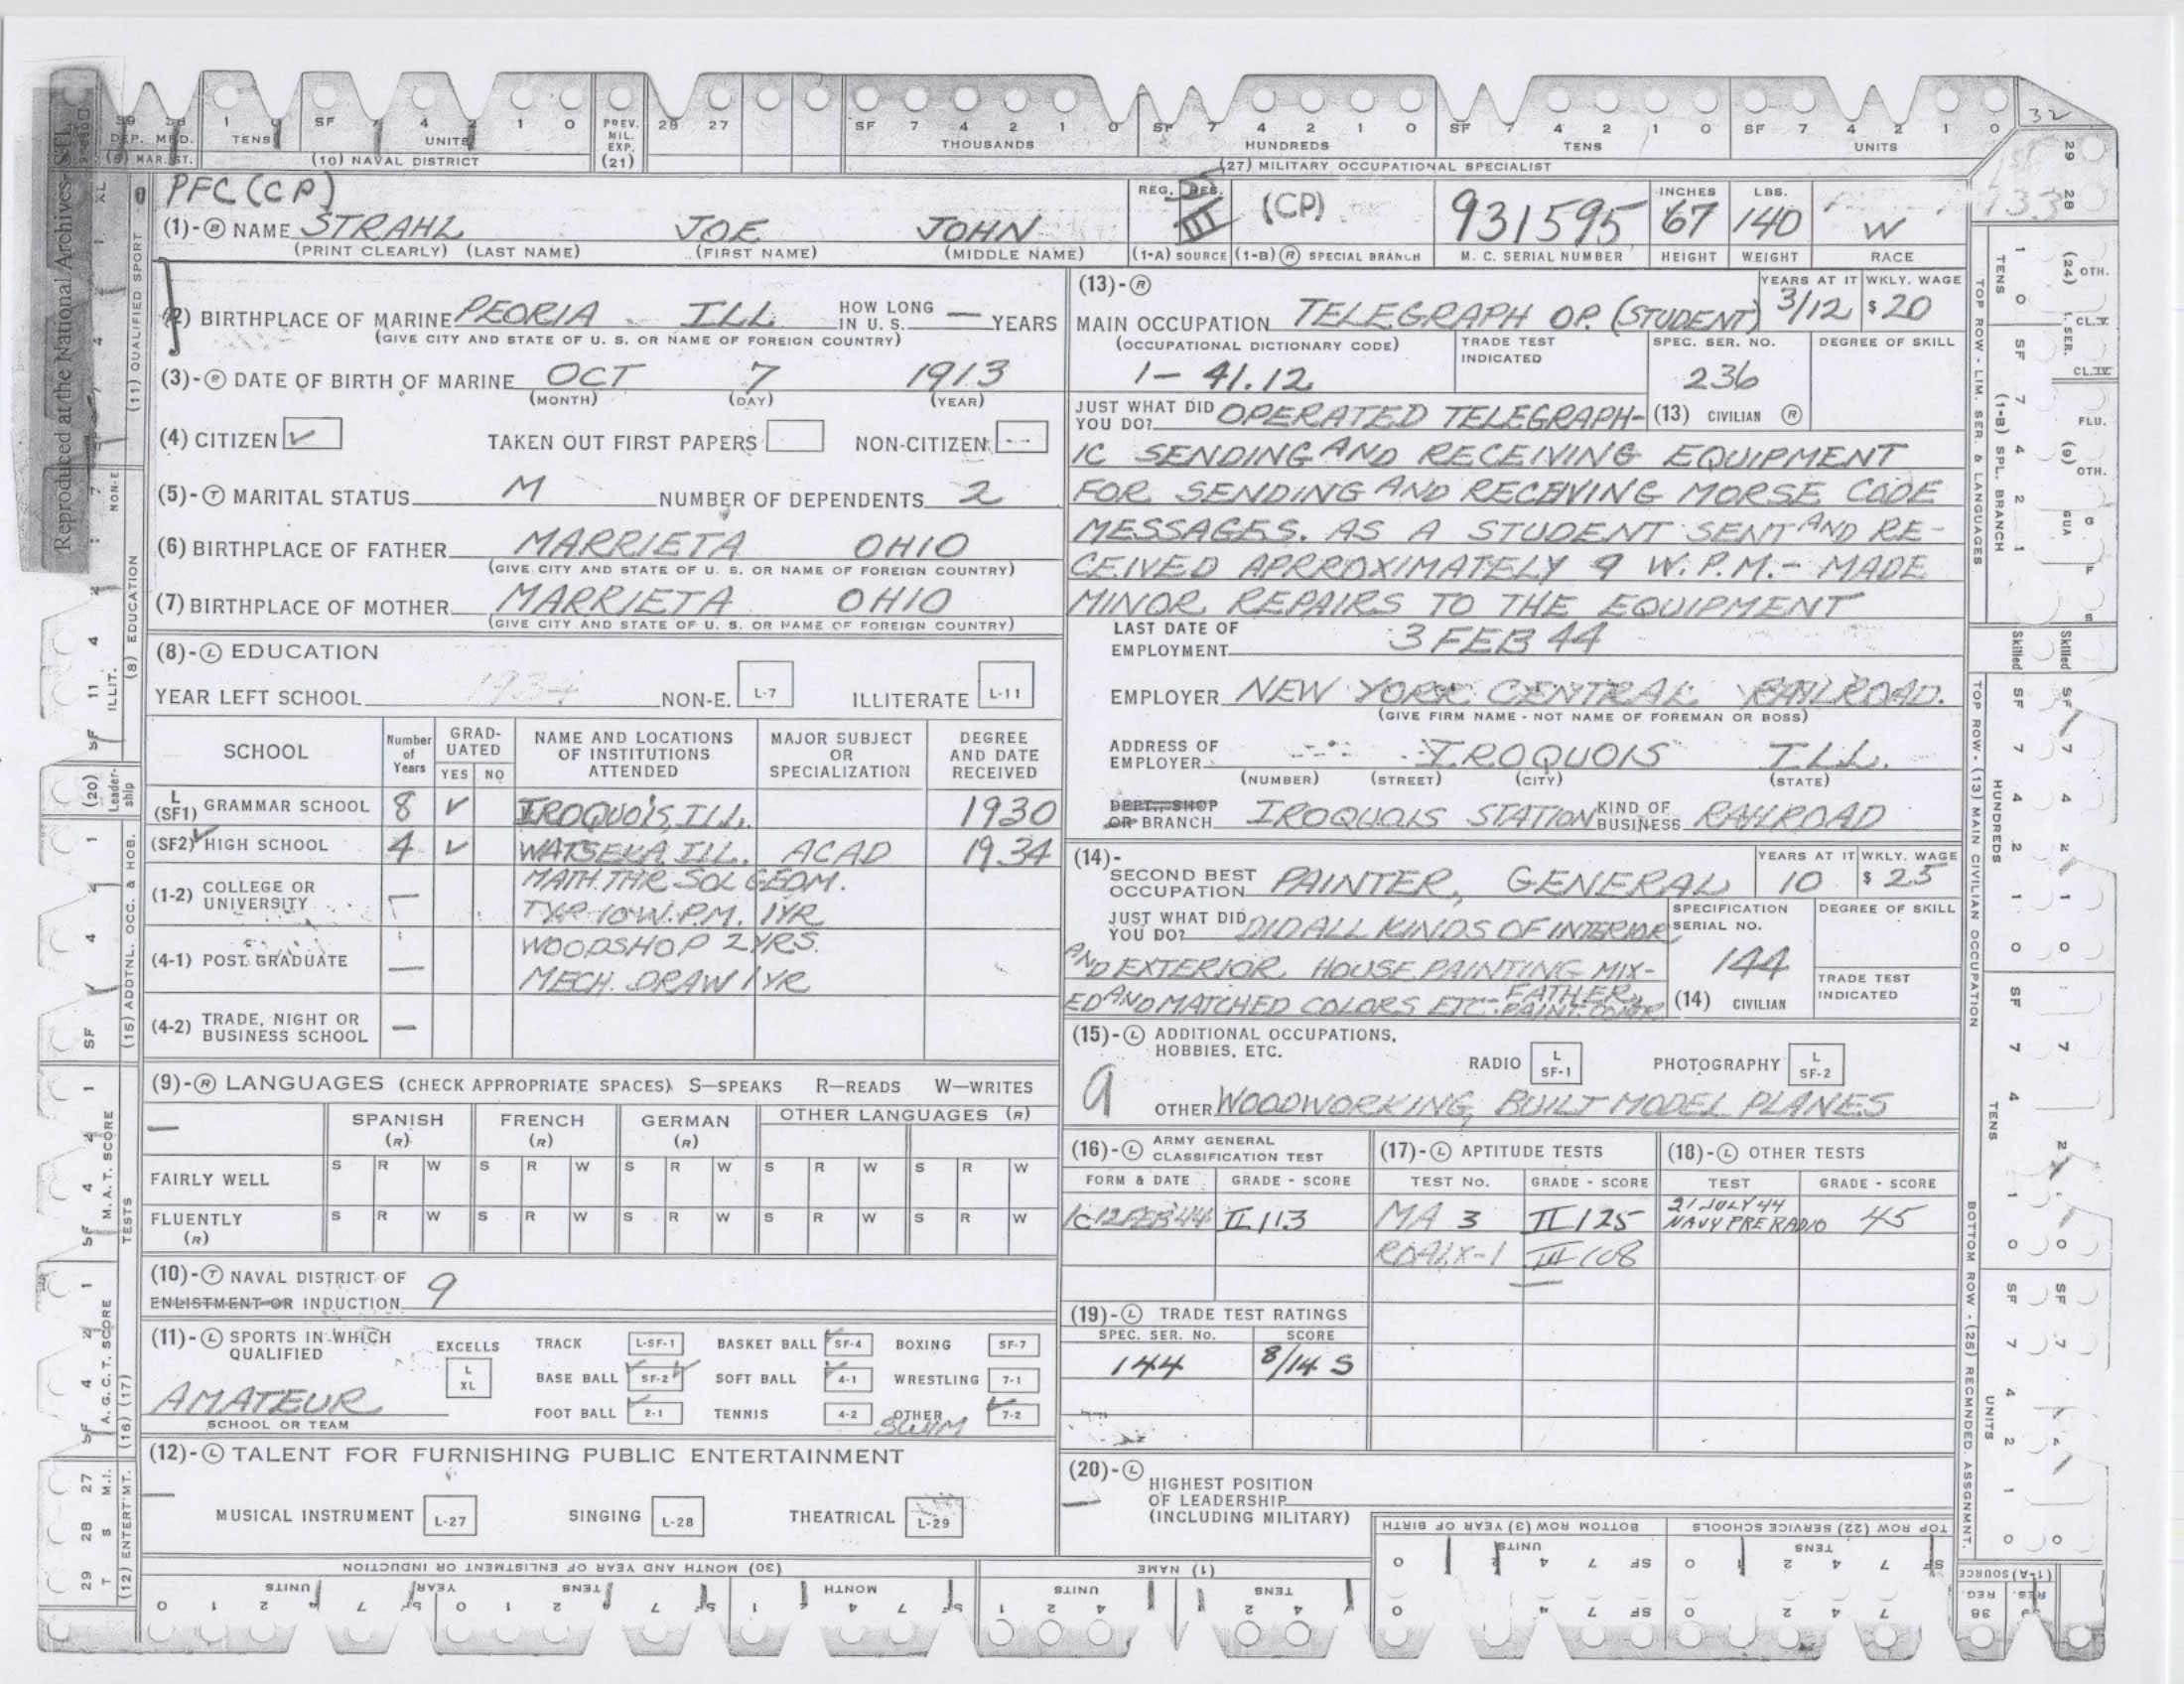 Reproduced at the National Archives-STL
32
39 38 1 0 SF 7 4 2 1 0 PREV. MIL. EXP. (21) 28 27 SF 7 4 2 1 0 SF 7 4 2 1 0 SF 7 4 2 1 0 SF 7 4 2 1 0
DEP. MED. TENS UNITS THOUSANDS HUNDREDS TENS UNITS
(5) MAR. ST. (10) NAVAL DISTRICT (27) MILITARY OCCUPATIONAL SPECIALIST
PFC (CP)
(1)-Ⓡ NAME STRAHL JOE JOHN
(PRINT CLEARLY) (LAST NAME) (FIRST NAME) (MIDDLE NAME)
REG. RES. III (CP) 931595 INCHES 67 LBS. 140 W
(1-A) SOURCE (1-B) Ⓡ SPECIAL BRANCH M. C. SERIAL NUMBER HEIGHT WEIGHT RACE
(2) BIRTHPLACE OF MARINE PEORIA ILL HOW LONG IN U. S. — YEARS
(GIVE CITY AND STATE OF U. S. OR NAME OF FOREIGN COUNTRY)
(3)-Ⓡ DATE OF BIRTH OF MARINE OCT 7 1913
(MONTH) (DAY) (YEAR)
(4) CITIZEN ✓ TAKEN OUT FIRST PAPERS NON-CITIZEN --
(5)-Ⓣ MARITAL STATUS M NUMBER OF DEPENDENTS 2
(6) BIRTHPLACE OF FATHER MARRIETA OHIO
(GIVE CITY AND STATE OF U. S. OR NAME OF FOREIGN COUNTRY)
(7) BIRTHPLACE OF MOTHER MARRIETA OHIO
(GIVE CITY AND STATE OF U. S. OR NAME OF FOREIGN COUNTRY)
(8)-Ⓛ EDUCATION
YEAR LEFT SCHOOL 1934 NON-E. L-7 ILLITERATE L-11
SCHOOL Number of Years GRADUATED YES NO NAME AND LOCATIONS OF INSTITUTIONS ATTENDED MAJOR SUBJECT OR SPECIALIZATION DEGREE AND DATE RECEIVED
L (SF1) GRAMMAR SCHOOL 8 ✓ IROQUOIS, ILL. 1930
(SF2) HIGH SCHOOL 4 ✓ WATSEKA ILL. ACAD 1934
(1-2) COLLEGE OR UNIVERSITY — MATH. THR SOL GEOM.
TYP 10 W.P.M. 1YR
(4-1) POST GRADUATE — WOODSHOP 2 YRS.
MECH. DRAW 1 YR
(4-2) TRADE, NIGHT OR BUSINESS SCHOOL —
(9)-Ⓡ LANGUAGES (CHECK APPROPRIATE SPACES) S—SPEAKS R—READS W—WRITES
— SPANISH (R) FRENCH (R) GERMAN (R) OTHER LANGUAGES (R)
FAIRLY WELL S R W S R W S R W S R W S R W
FLUENTLY (R) S R W S R W S R W S R W S R W
(10)-Ⓣ NAVAL DISTRICT OF ENLISTMENT OR INDUCTION 9
(11)-Ⓛ SPORTS IN WHICH QUALIFIED EXCELLS L XL
TRACK L-SF-1 BASKET BALL SF-4 BOXING SF-7
BASE BALL SF-2 SOFT BALL 4-1 WRESTLING 7-1
FOOT BALL 2-1 TENNIS 4-2 OTHER SWIM 7-2
AMATEUR
SCHOOL OR TEAM
(12)-Ⓛ TALENT FOR FURNISHING PUBLIC ENTERTAINMENT
— MUSICAL INSTRUMENT L-27 SINGING L-28 THEATRICAL L-29
(13)-Ⓡ YEARS AT IT WKLY. WAGE
MAIN OCCUPATION TELEGRAPH OP. (STUDENT) 3/12 $ 20
(OCCUPATIONAL DICTIONARY CODE) TRADE TEST INDICATED SPEC. SER. NO. DEGREE OF SKILL
1-41.12 236
JUST WHAT DID YOU DO? OPERATED TELEGRAPH- (13) CIVILIAN Ⓡ
IC SENDING AND RECEIVING EQUIPMENT
FOR SENDING AND RECEIVING MORSE CODE
MESSAGES. AS A STUDENT SENT AND RE-
CEIVED APRROXIMATELY 9 W.P.M.- MADE
MINOR REPAIRS TO THE EQUIPMENT
LAST DATE OF EMPLOYMENT 3 FEB 44
EMPLOYER NEW YORK CENTRAL RAILROAD.
(GIVE FIRM NAME - NOT NAME OF FOREMAN OR BOSS)
ADDRESS OF EMPLOYER IROQUOIS ILL.
(NUMBER) (STREET) (CITY) (STATE)
DEPT., SHOP OR BRANCH IROQUOIS STATION KIND OF BUSINESS RAILROAD
(14)- YEARS AT IT WKLY. WAGE
SECOND BEST OCCUPATION PAINTER, GENERAL 10 $ 25
JUST WHAT DID YOU DO? DID ALL KINDS OF INTERIOR SPECIFICATION SERIAL NO. DEGREE OF SKILL
AND EXTERIOR HOUSE PAINTING MIX- 144 TRADE TEST INDICATED
ED AND MATCHED COLORS ETC- FATHER, PAINT CONTR (14) CIVILIAN
(15)-Ⓛ ADDITIONAL OCCUPATIONS, HOBBIES, ETC. RADIO L SF-1 PHOTOGRAPHY L SF-2
9 OTHER WOODWORKING, BUILT MODEL PLANES
(16)-Ⓛ ARMY GENERAL CLASSIFICATION TEST (17)-Ⓛ APTITUDE TESTS (18)-Ⓛ OTHER TESTS
FORM & DATE GRADE - SCORE TEST No. GRADE - SCORE TEST GRADE - SCORE
1C 12 FEB 44 II 113 MA 3 II 125 21 JULY 44 NAVY PRE RADIO 45
ROA1X-1 III 108
(19)-Ⓛ TRADE TEST RATINGS
SPEC. SER. No. SCORE
144 8/14 S
(20)-Ⓛ
— HIGHEST POSITION
OF LEADERSHIP
(INCLUDING MILITARY)
(11) QUALIFIED SPORT
(8) EDUCATION
NON-E
ILLIT.
(20) Leadership
(15) ADDTNL. OCC. & HOB.
TESTS
M.A.T. SCORE
A.G.C.T. SCORE
(16) (17)
(12) ENTERT'MT.
TOP ROW - LIM. SER. & LANGUAGES
(1-B) SPL. BRANCH
(24) OTH.
1. SER. CL. V CL. IV
(9) FLU. OTH.
GUA G F S
Skilled Skilled
TOP ROW - (13) MAIN CIVILIAN OCCUPATION
HUNDREDS
TENS
UNITS
BOTTOM ROW - (25) RECMNDED. ASSGNMNT.
TOP ROW (22) SERVICE SCHOOLS
BOTTOM ROW (3) YEAR OF BIRTH
(1-A) SOURCE
RES. REG.
(1) NAME
TENS UNITS
(30) MONTH AND YEAR OF ENLISTMENT OR INDUCTION
MONTH TENS YEAR UNITS